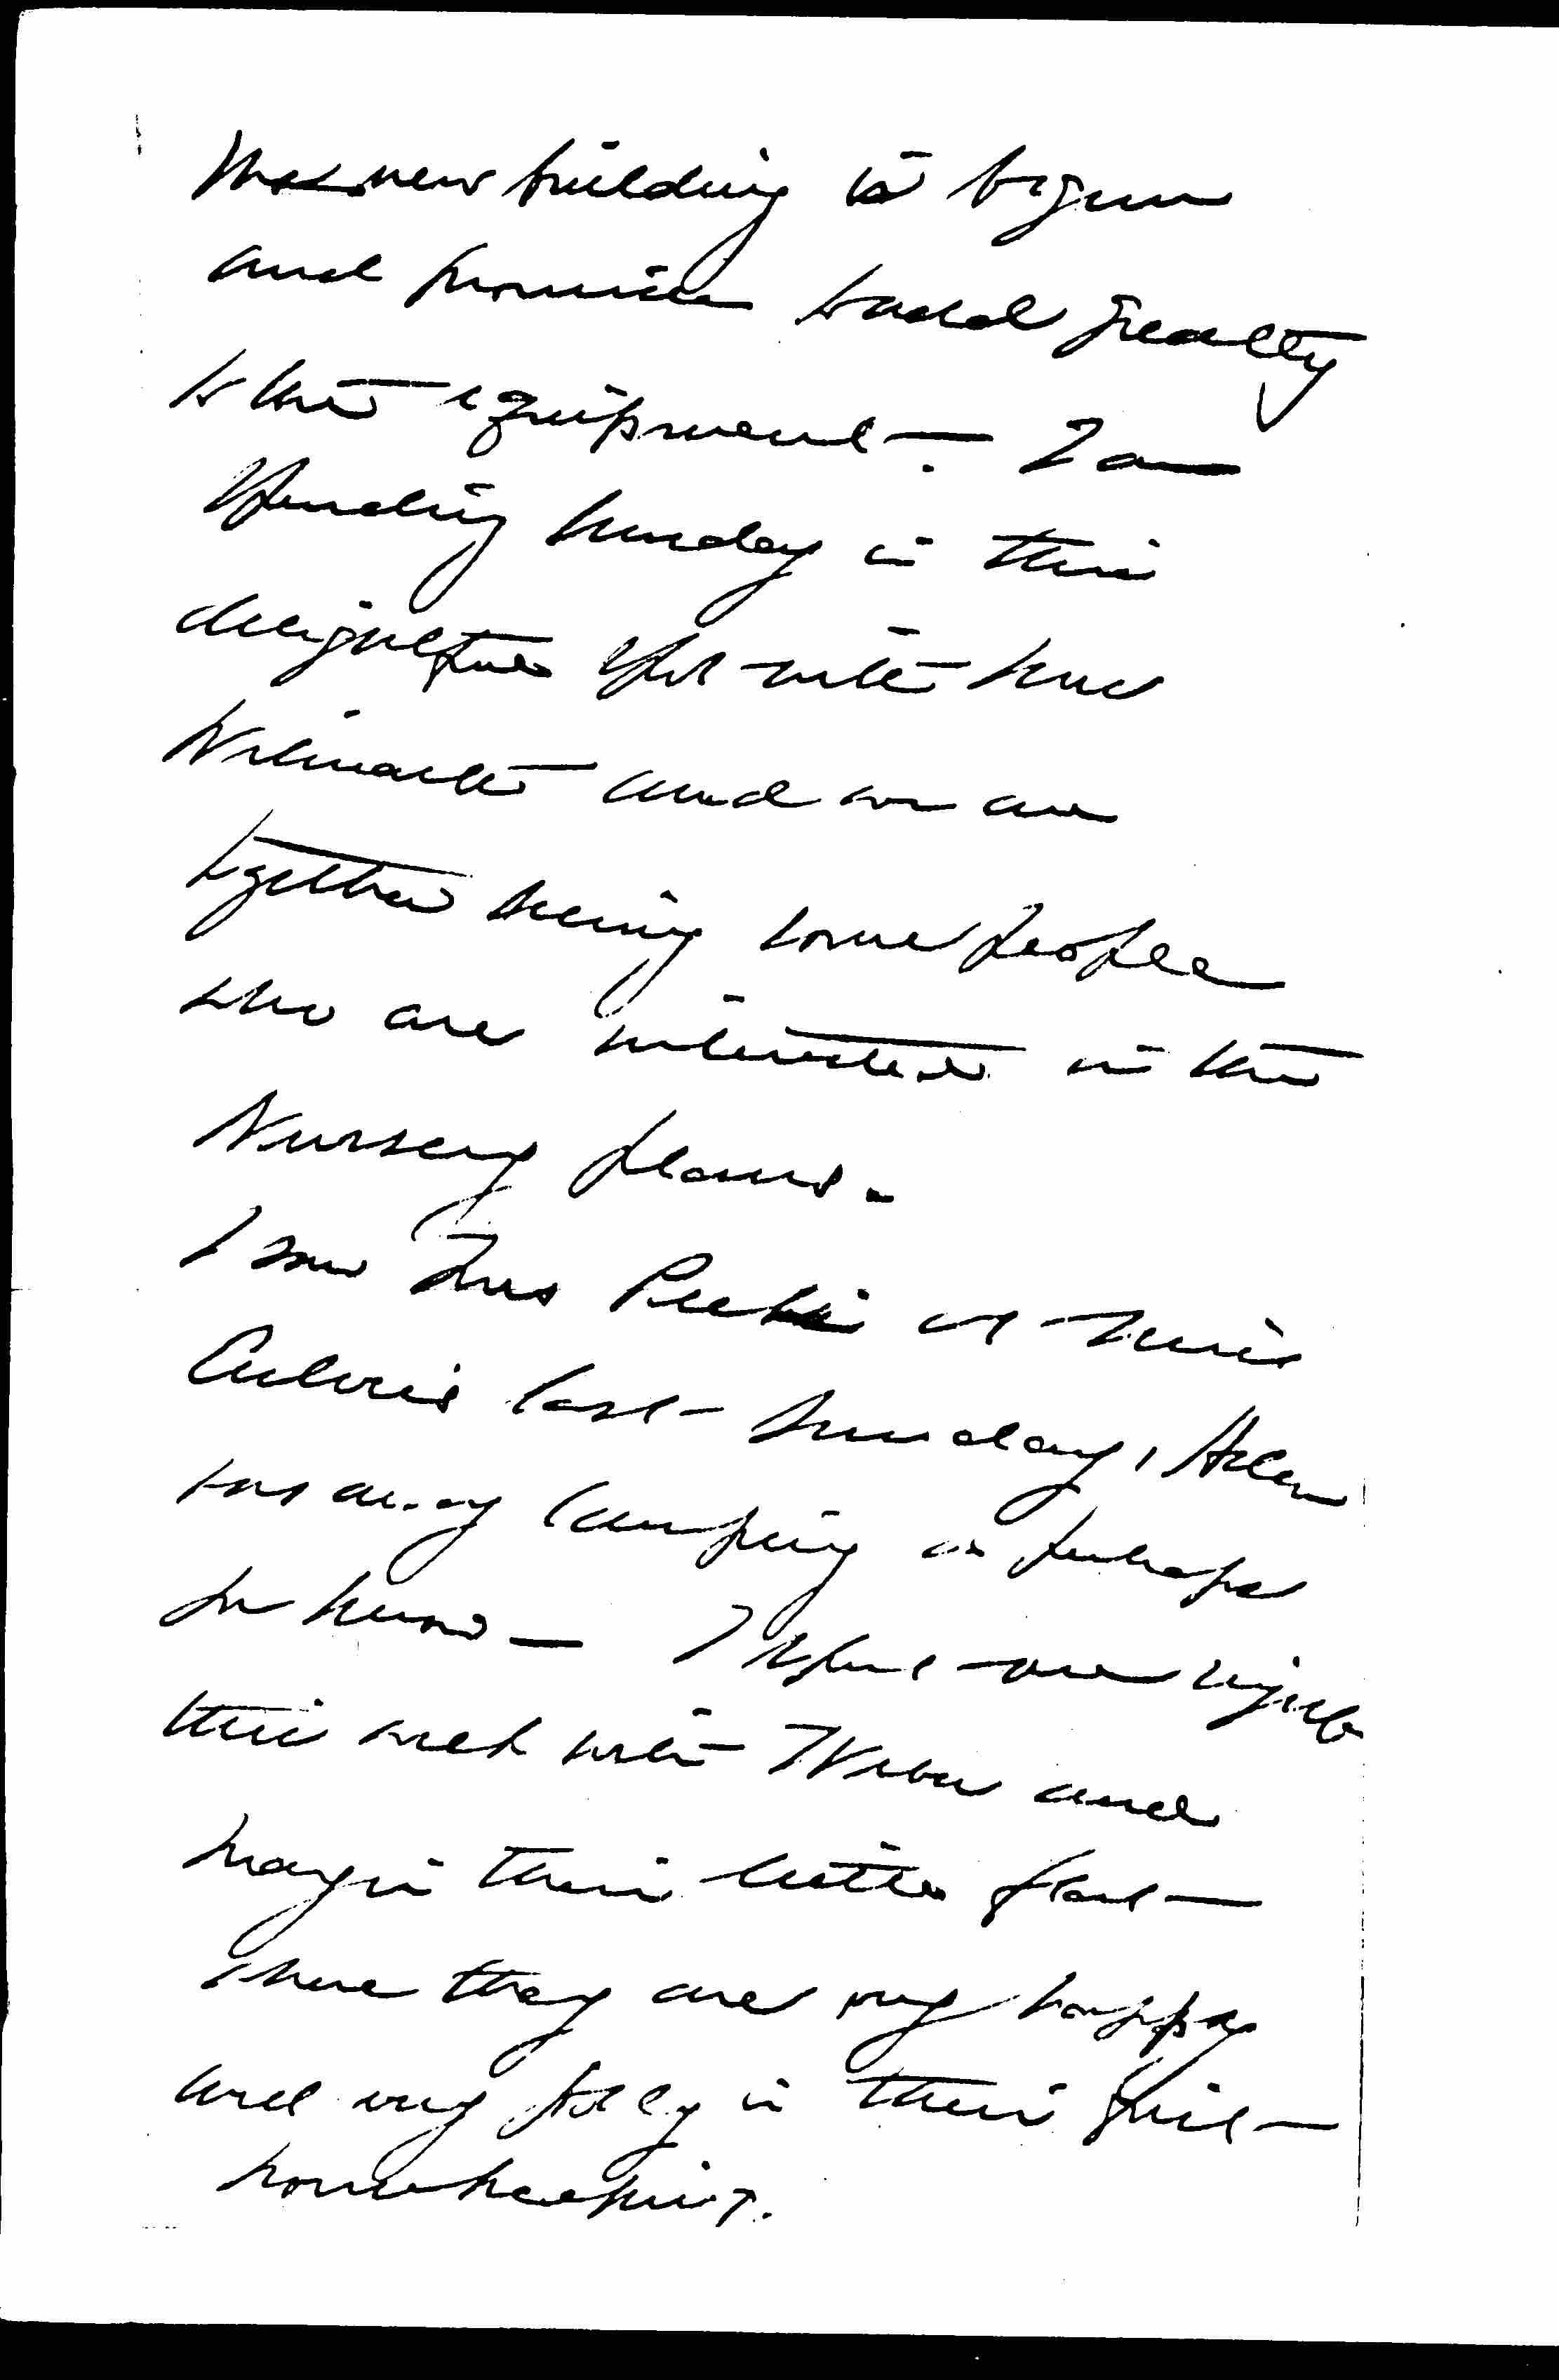 new building is begun
and promises to add greatly
to our equipment — I am
spending Sunday in this
delightful spot with Mrs
Wilmarth and we are
together seeing some people
who are interested in the
Nursery plans.
I saw Mrs at Miss
Culver's last Sunday, Helen
was away camping as perhaps
you know — I spent one night
this week with Weber and
in their little flat
where they are very happy
and very jolly in their first
housekeeping.